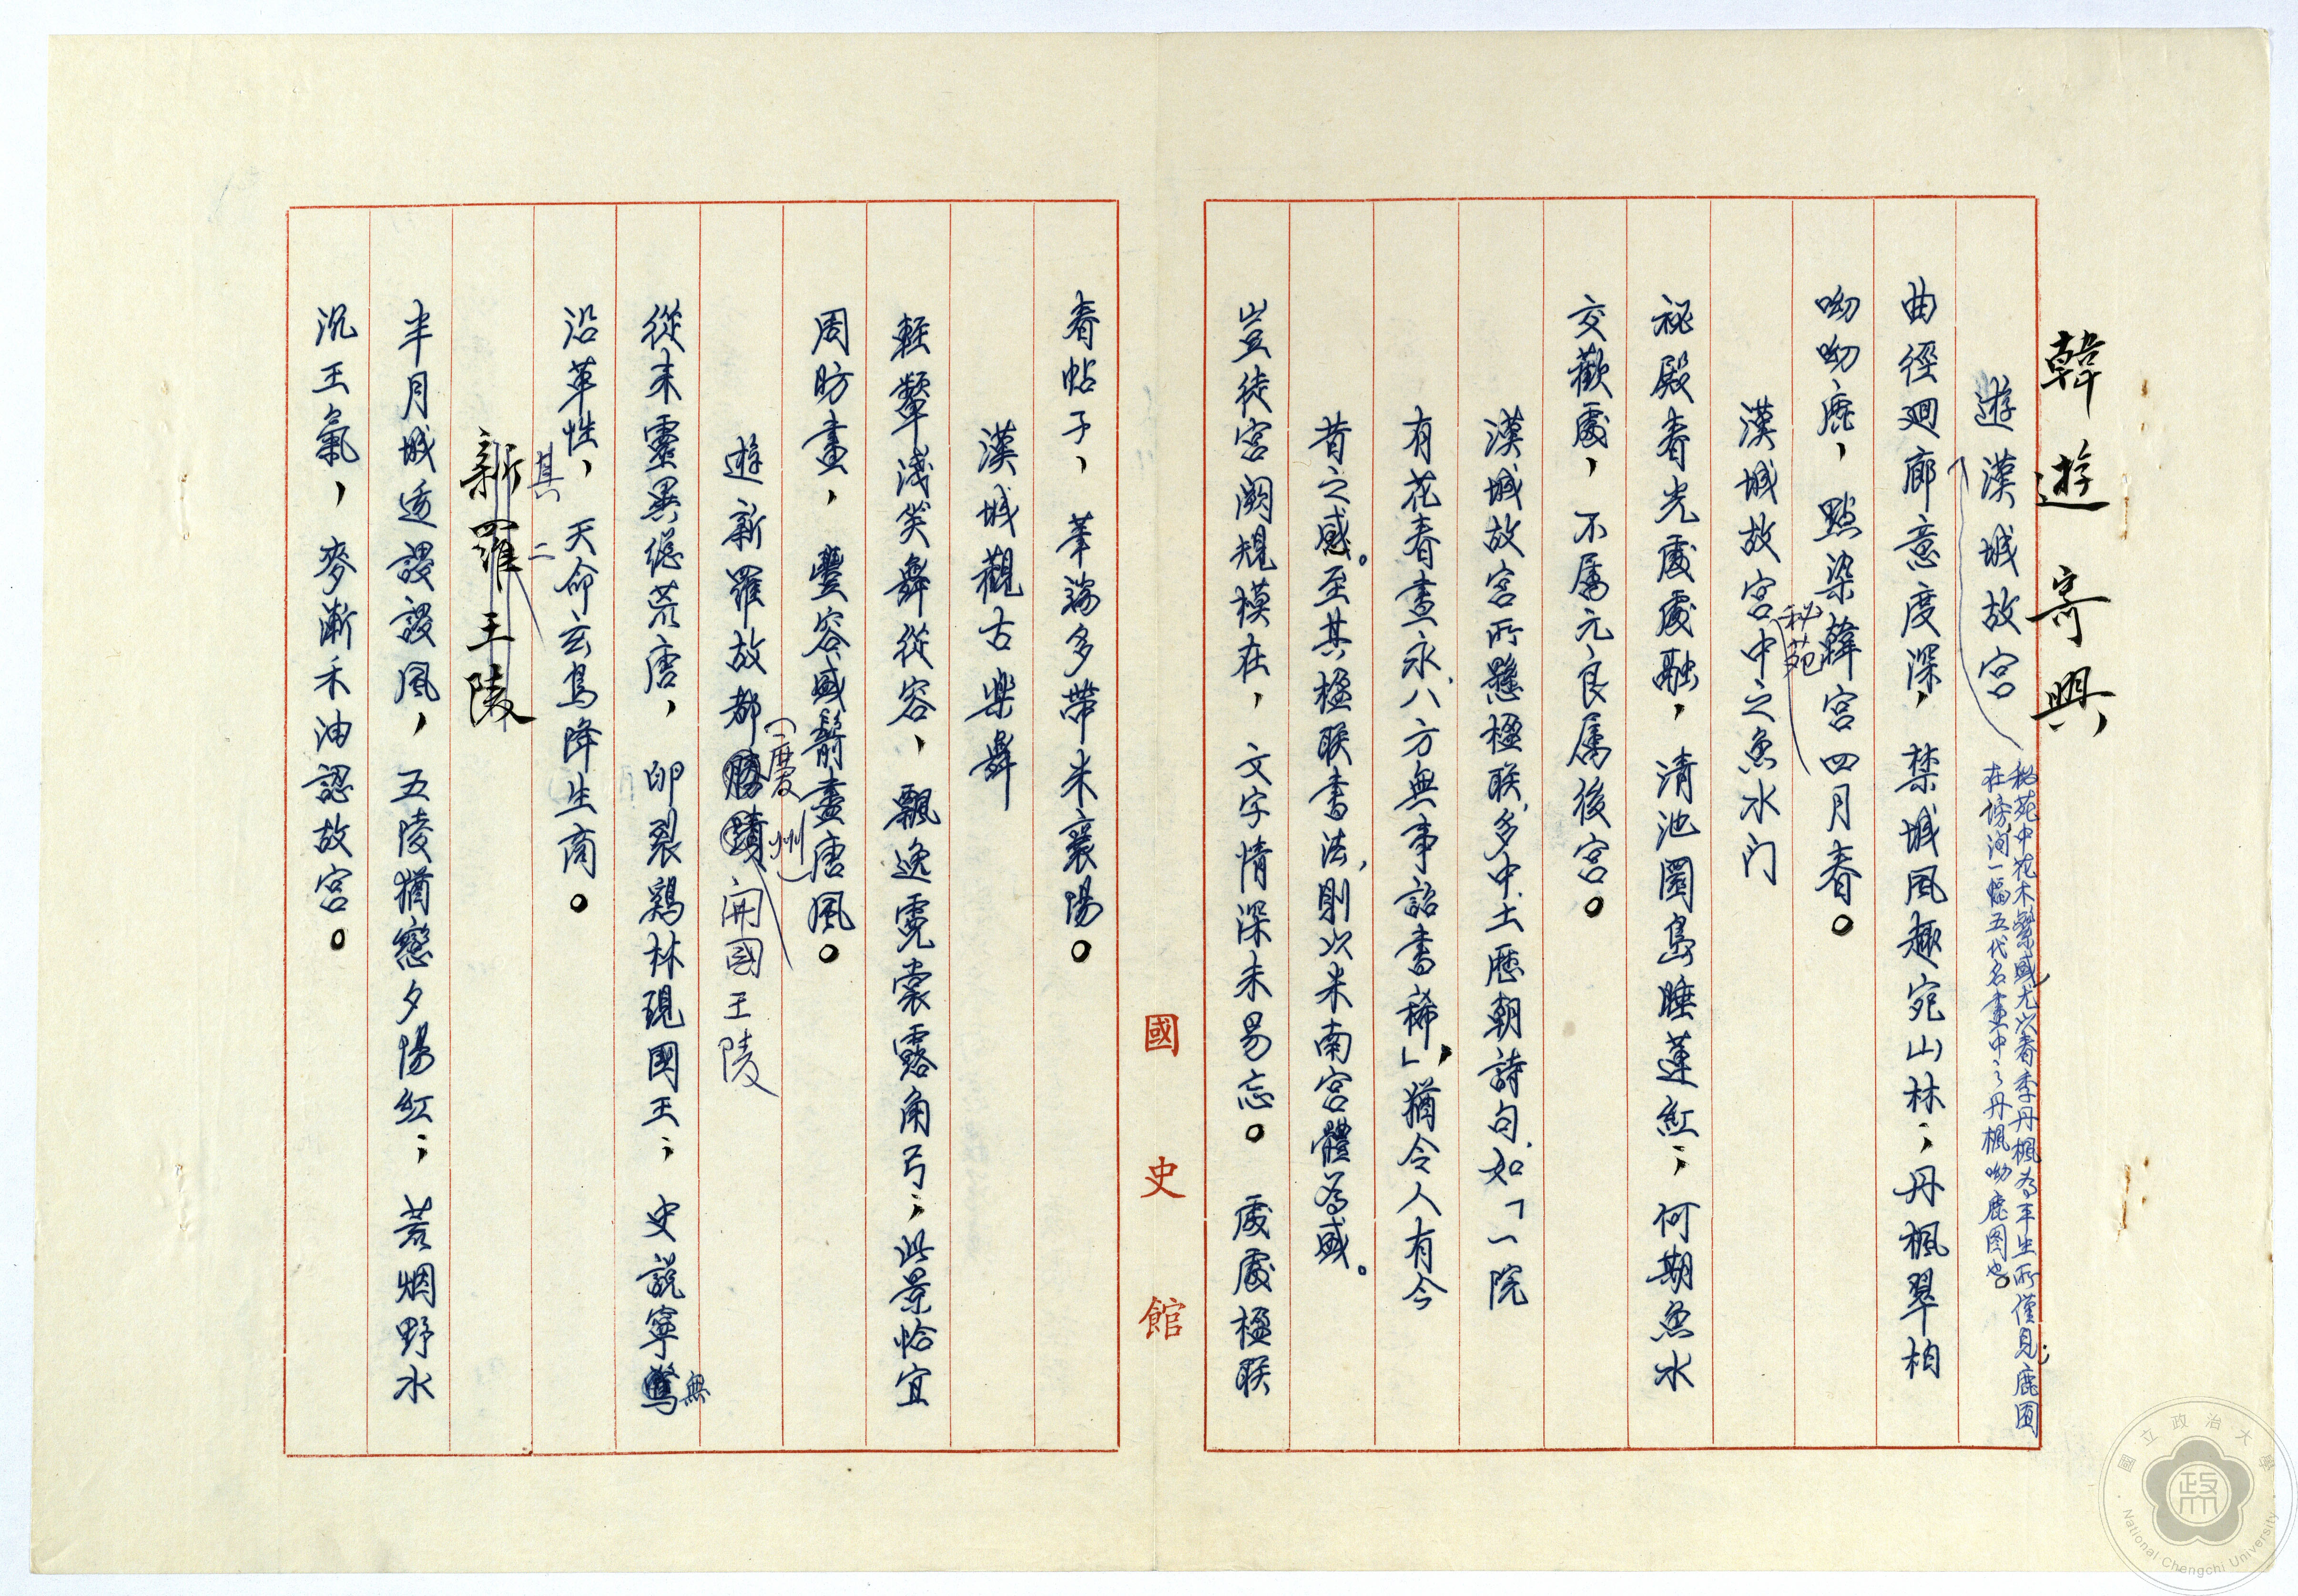 韓遊寄興
遊漢城故宮
秘苑中花木繁盛，尤以春季丹楓為平生所僅見；鹿囿
在傍，洵一幅五代名畫中之丹楓呦鹿图也。
曲徑迴廊意度深，禁城風趣宛山林；丹楓翠柏
呦呦鹿，點染韓宮四月春。
秘苑
漢城故宮中之魚水门
祕殿春光處處融，清池圍島睡蓮紅；何期魚水
交歡處，不屬元良屬後宮。
漢城故宮所懸楹联，多中土歷朝詩句，如「一院
有花春晝永，八方無事詔書稀」，猶令人有今
昔之感。至其楹联書法，則以米南宮體為盛。
豈徒宮闕規模在，文字情深未易忘。處處楹联
春帖子，筆端多帶米襄陽。
國史館
漢城觀古樂舞
輕顰淺笑舞從容，飄逸霓裳露角弓；此景恰宜
周昉畫，豐容盛鬋盡唐風。
（慶州）
遊新羅故都勝蹟開國王陵
從來靈異總荒唐，卵裂鷄林現國王；史說寧無
沿革性，天命玄鳥降生商。
其二
新羅王陵
半月城透謖謖風，五陵猶戀夕陽紅；荒烟野水
沉王氣，麥漸禾油認故宮。
國立政治大學
National Chengchi University